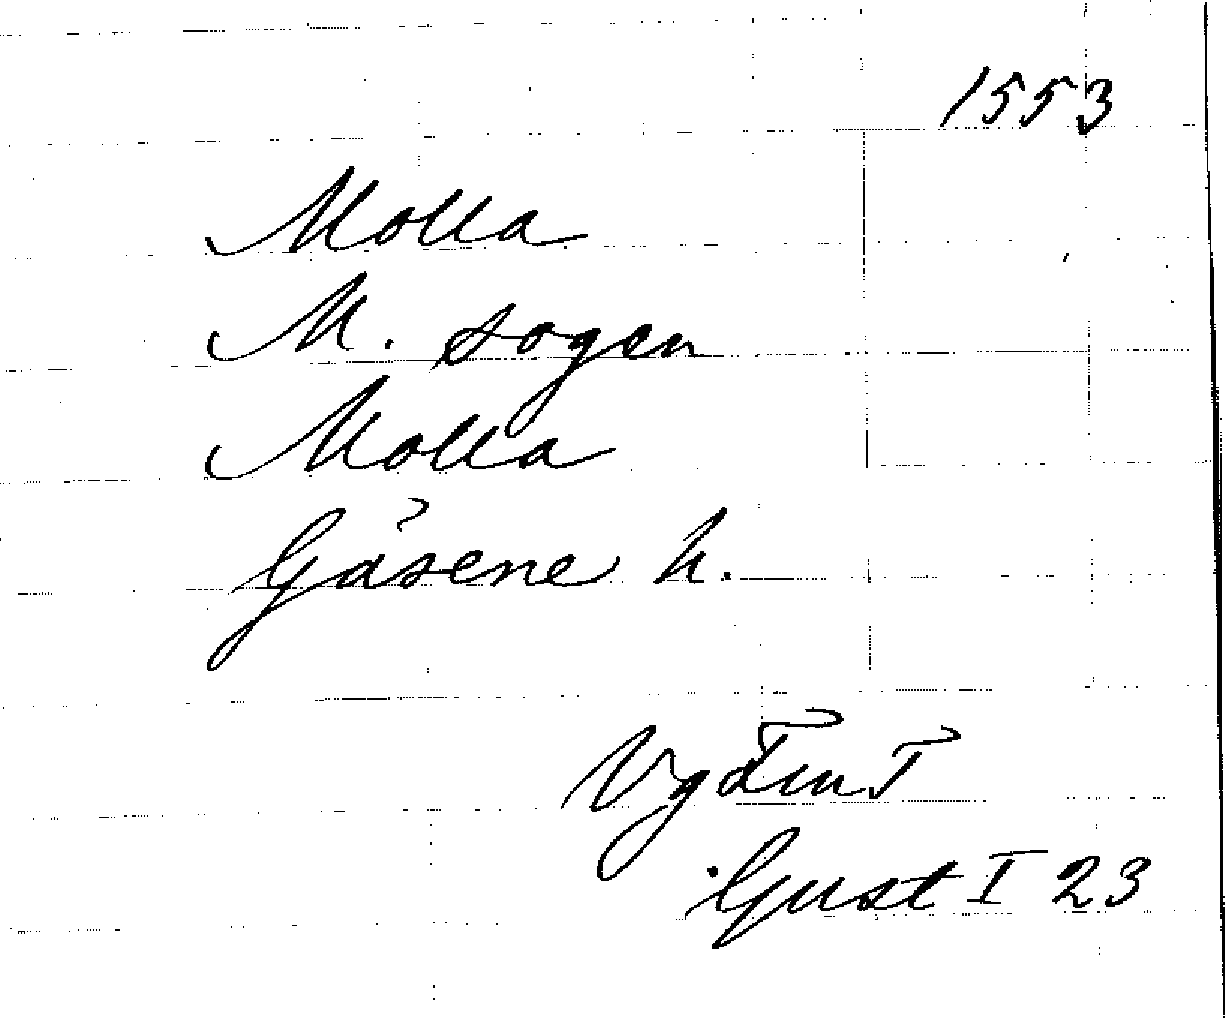 1553
Molla
M. sogen
Molla
Gäsene h.
Vg
Gust I 23